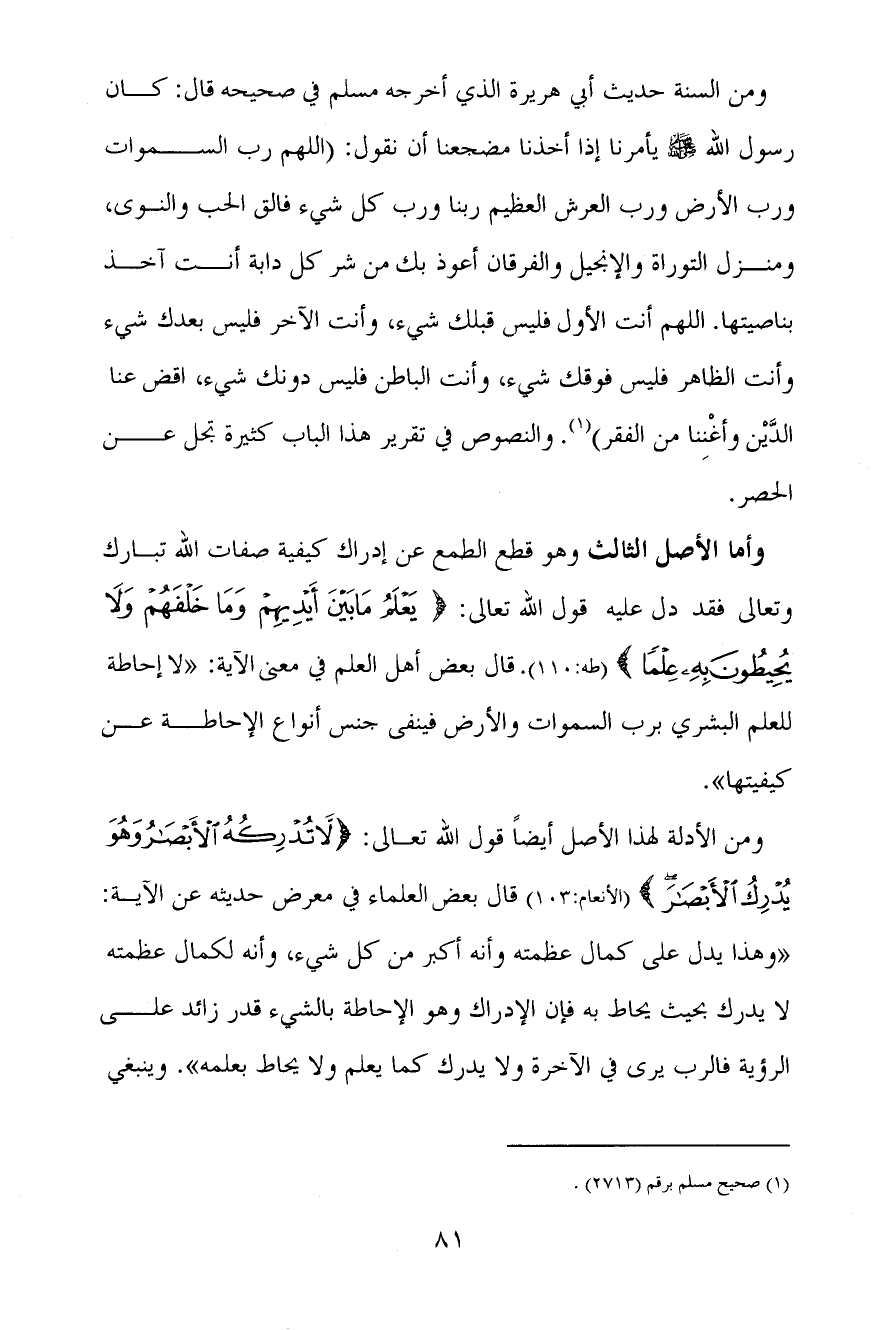 ومن السنة حديث أبي هريرة الذي أخرجه مسلم في صحيحه قال: كـــان
رسول الله ﷺ يأمرنا إذا أخذنا مضجعنا أن نقول: (اللهم رب الســـموات
ورب الأرض ورب العرش العظيم ربنا ورب كل شيء فالق الحب والنــوى،
ومنـــزل التوراة والإنجيل والفرقان أعوذ بك من شر كل دابة أنـــت آخـــذ
بناصيتها. اللهم أنت الأول فليس قبلك شيء، وأنت الآخر فليس بعدك شيء
وأنت الظاهر فليس فوقك شيء، وأنت الباطن فليس دونك شيء، اقض عنا
الدَّيْن وأغْنِنا من الفقر)(١). والنصوص في تقرير هذا الباب كثيرة تجل عـــن
الحصر.
وأما الأصل الثالث وهو قطع الطمع عن إدراك كيفية صفات الله تبــارك
وتعالى فقد دل عليه قول الله تعالى: ﴿ يَعْلَمُ مَا بَيْنَ أَيْدِيهِمْ وَمَا خَلْفَهُمْ وَلَا
يُحِيطُونَ بِهِۦ عِلْمًا ﴾ (طه:١١٠). قال بعض أهل العلم في معنى الآية: «لا إحاطة
للعلم البشري برب السموات والأرض فينفى جنس أنواع الإحاطـــة عـــن
كيفيتها».
ومن الأدلة لهذا الأصل أيضاً قول الله تعــالى: ﴿لَا تُدْرِكُهُ ٱلْأَبْصَٰرُ وَهُوَ
يُدْرِكُ ٱلْأَبْصَٰرَۖ ﴾ (الأنعام:١٠٣) قال بعض العلماء في معرض حديثه عن الآيــة:
«وهذا يدل على كمال عظمته وأنه أكبر من كل شيء، وأنه لكمال عظمته
لا يدرك بحيث يحاط به فإن الإدراك وهو الإحاطة بالشيء قدر زائد علـــى
الرؤية فالرب يرى في الآخرة ولا يدرك كما يعلم ولا يحاط بعلمه». وينبغي
(١) صحيح مسلم برقم (٢٧١٣) .
٨١